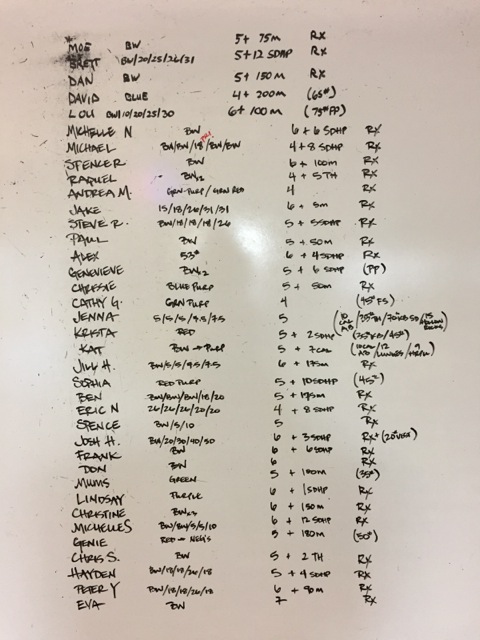 MOE BW 5+ 75m RX
BRETT BW/20/25/26/31 5+12 SDHP RX
DAN BW 5+ 150m RX
DAVID BLUE 4+ 200m (65#)
LOU BW/10/20/25/30 6+ 100m (75# PP)
MICHELLE N BW 6+6 SDHP RX
MICHAEL BW/BW/18/BW/BW 4+8 SDHP RX
SPENCER BW 6+ 100m RX
RAQUEL BWx2 4+ 5 TH RX
ANDREA M. GRN PURP/GRN RED 4 RX
JAKE 15/18/26/31/31 6+ 5m RX
STEVE R. BW/18/18/18/26 5+ 5 SDHP RX
PAUL BW 5+ 50m RX
ALEX 53# 6+ 4 SDHP RX
GENEVIEVE BWx2 5+ 6 SDHP (PP)
CHRSSIE BLUE PURP 5+ 50m RX
CATHY G. GRN PURP 4 (45# FS)
JENNA 5/5/5/7.5/7.5 5
KRISTA RED 5+ 2 SDHP (35# KB/45#)
KAT BW → PURP 5+ 7 CAL
JILL H. BW/5/5/7.5/7.5 6+ 175m RX
SOPHIA RED PURP 5+ 10 SDHP (45#)
BEN BW/BW/BW/18/20 5+ 175m RX
ERIC N 26/26/26/20/20 4+ 8 SDHP RX
SPENCE BW/5/10 5 RX
JOSH H. BW/20/30/40/50 6+ 3 SDHP RX+ (20# VEST)
FRANK BW 6+ 6 SDHP RX
DON BW 6 RX
MUMS GREEN 5+ 150m (35#)
LINDSAY PURPLE 6+ 1 SDHP RX
CHRISTINE BWx2 6+ 150m RX
MICHELLE S BW/BW/5/5/10 6+ 12 SDHP RX
GENIE RED → NEG'S 5+ 180m (50#)
CHRIS S. BW 5+ 2 TH RX
HAYDEN BW/18/18/26/18 5+ 4 SDHP RX
PETER Y BW/18/18/26/18 6+ 90m RX
EVA BW 7 RX